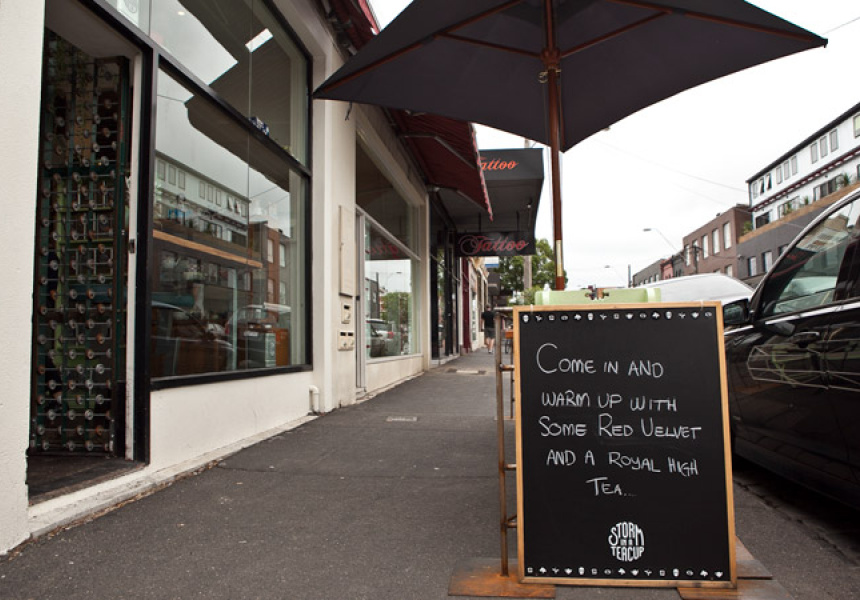 Tattoo
Tattoo
COME IN AND
WARM UP WITH
SOME RED VELVET
AND A ROYAL HIGH
TEA...
STORM
IN A
TEACUP